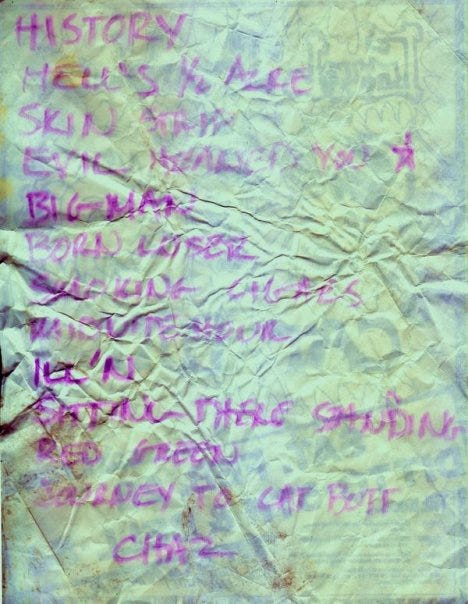 HISTORY
HELL'S ½ ACRE
SKIN
EVIL HEARTED YOU
BIG-MAN
BORN LOSER
SMOKING CIGARS
ILL'N
SITTING THERE STANDING
RED GREEN
JOURNEY TO CAT BUTT
CHAZ